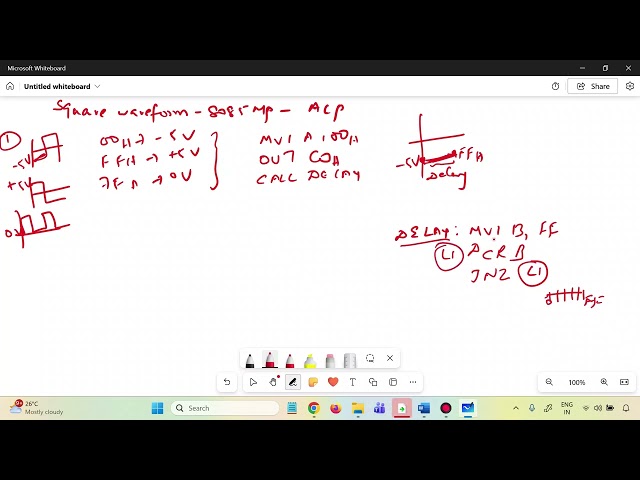 Microsoft Whiteboard
Untitled whiteboard
Share
Square waveform - 8085 MP - ALP
1
-5V
+5V
0V
00H → -5V
FFH → +5V
7FH → 0V
MVI A, 00H
OUT C0H
CALL DELAY
-5V
FFH
Delay
DELAY: MVI B, FF
L1 DCR B
JNZ L1
0
FF
100%
26°C
Mostly cloudy
Search
ENG
IN